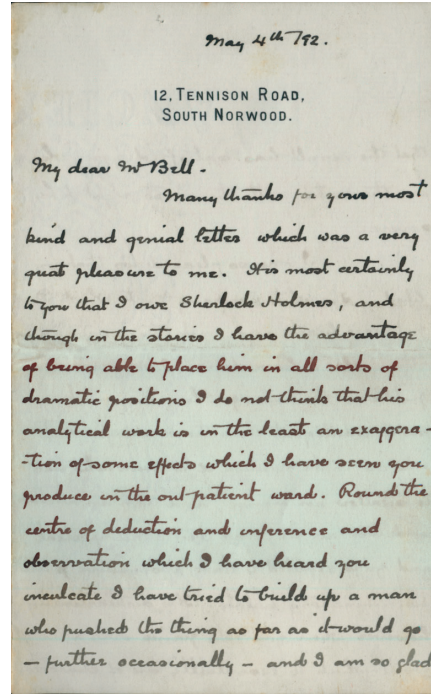 May 4th/92.
12, TENNISON ROAD,
SOUTH NORWOOD.
My dear Mr Bell.
Many thanks for your most
kind and genial letter which was a very
great pleasure to me. It is most certainly
to you that I owe Sherlock Holmes, and
though in the stories I have the advantage
of being able to place him in all sorts of
dramatic positions I do not think that his
analytical work is in the least an exaggera-
-tion of some effects which I have seen you
produce in the out-patient ward. Round the
centre of deduction and inference and
observation which I have heard you
inculcate I have tried to build up a man
who pushed the thing as far as it would go
— further occasionally — and I am so glad